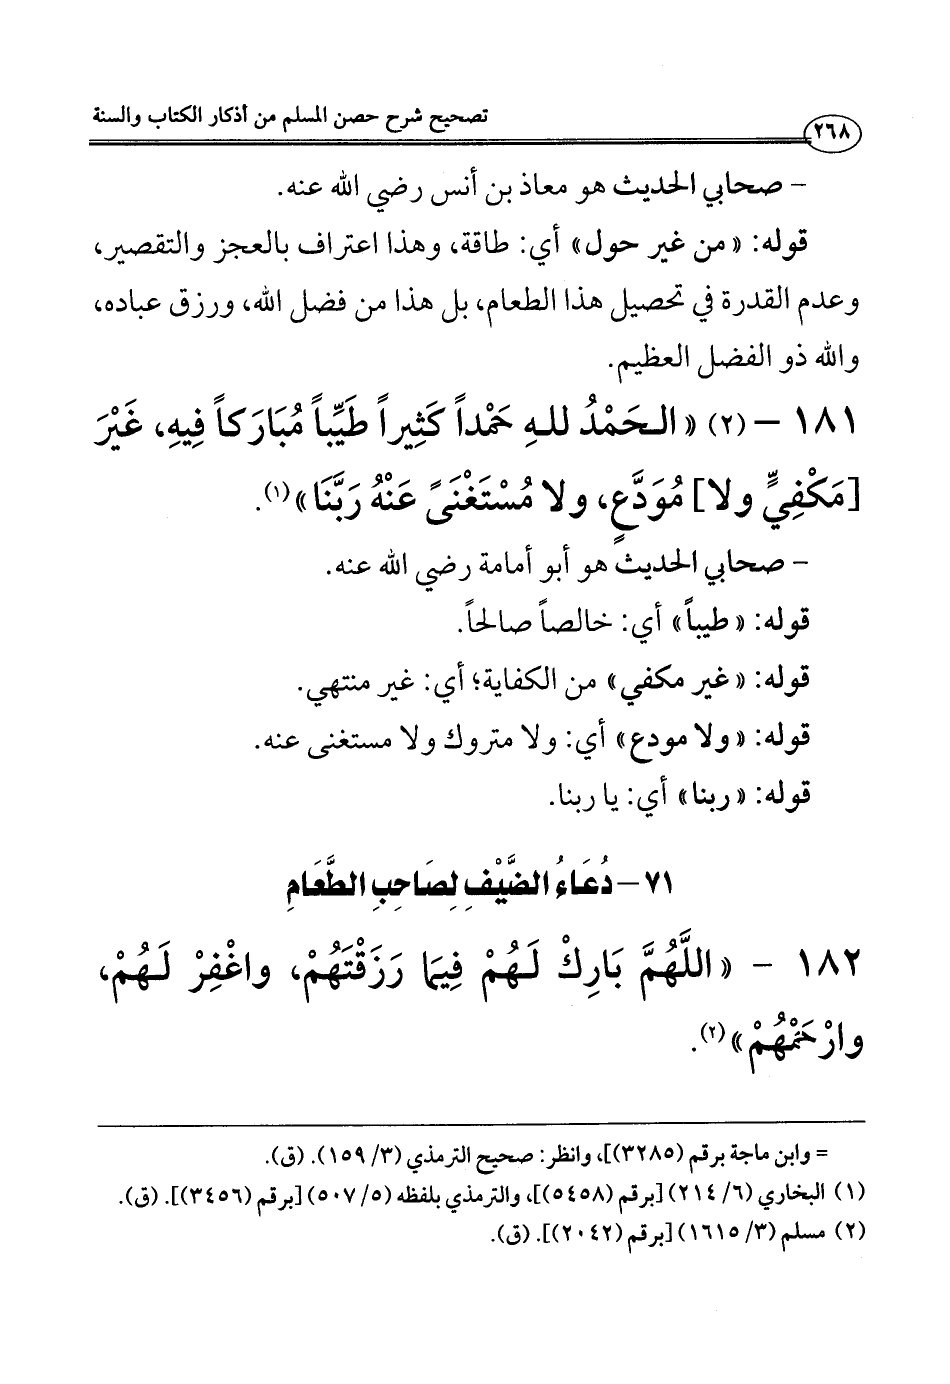 ٢٦٨
تصحيح شرح حصن المسلم من أذكار الكتاب والسنة
- صحابي الحديث هو معاذ بن أنس رضي الله عنه.
قوله: «من غير حول» أي: طاقة، وهذا اعتراف بالعجز والتقصير،
وعدم القدرة في تحصيل هذا الطعام، بل هذا من فضل الله، ورزق عباده،
والله ذو الفضل العظيم.
١٨١ - (٢) «الـحَمْدُ للهِ حَمْداً كَثِيراً طَيِّباً مُبَارَكاً فِيهِ، غَيْرَ
[مَكْفِيٍّ ولا] مُوَدَّعٍ، ولا مُسْتَغْنَىً عَنْهُ رَبَّنَا»(١).
- صحابي الحديث هو أبو أمامة رضي الله عنه.
قوله: «طيباً» أي: خالصاً صالحاً.
قوله: «غير مكفي» من الكفاية؛ أي: غير منتهي.
قوله: «ولا مودع» أي: ولا متروك ولا مستغنى عنه.
قوله: «ربنا» أي: يا ربنا.
٧١- دُعَاءُ الضَّيْفِ لِصَاحِبِ الطَّعَامِ
١٨٢ - «اللَّهُمَّ بَارِكْ لَـهُمْ فِيمَا رَزَقْتَهُمْ، واغْفِرْ لَـهُمْ،
وارْحَمْهُمْ»(٢).
= وابن ماجة برقم (٣٢٨٥)]، وانظر: صحيح الترمذي (٣/ ١٥٩). (ق).
(١) البخاري (٦/ ٢١٤) [برقم (٥٤٥٨)]، والترمذي بلفظه (٥/ ٥٠٧) [برقم (٣٤٥٦)]. (ق).
(٢) مسلم (٣/ ١٦١٥) [برقم (٢٠٤٢)]. (ق).